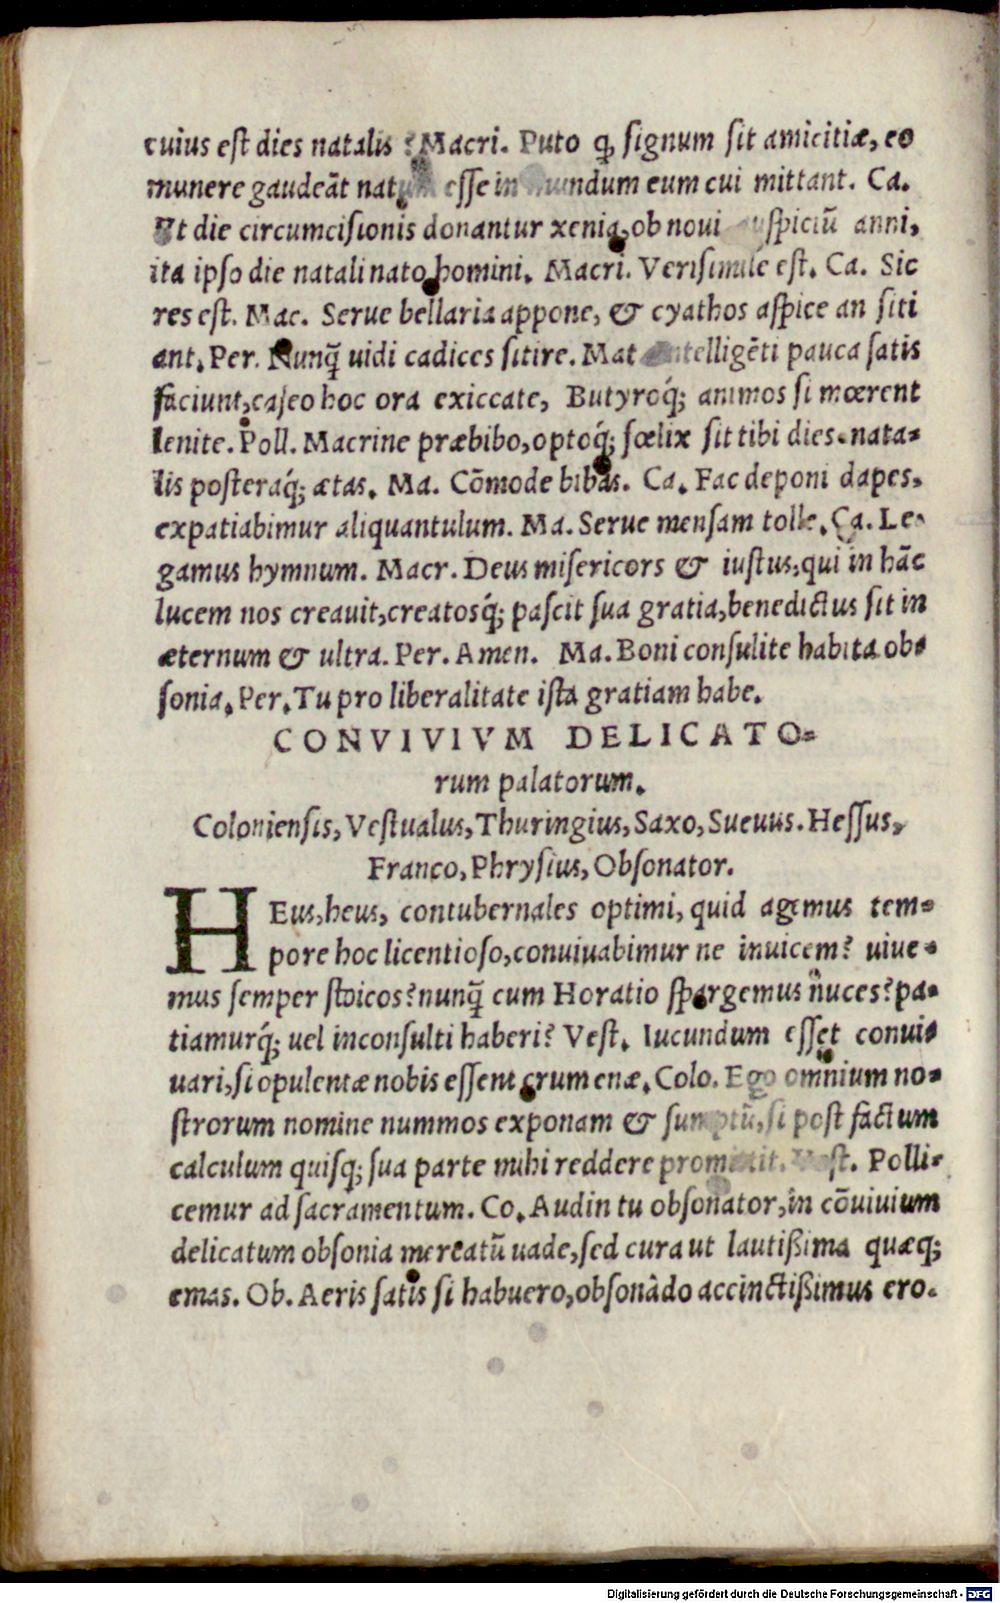 cuius eſt dies natalis ? Macri. Puto ꝙ ſignum ſit amicitiæ, eo
munere gaudeāt natum eſſe in mundum eum cui mittant. Ca.
Vt die circumciſionis donantur xenia, ob noui auſpiciū anni,
ita ipſo die natali nato homini. Macri. Veriſimile eſt. Ca. Sic
res eſt. Mac. Serue bellaria appone, & cyathos aſpice an ſiti
ant. Per. Nunq̄ uidi cadices ſitire. Mat intelligēti pauca ſatis
faciunt, caſeo hoc ora exiccate, Butyroq́; animos ſi mœrent
lenite. Poll. Macrine præbibo, optoq́; fœlix ſit tibi dies nata-
lis poſteraq́; ætas. Ma. Cōmode bibas. Ca. Fac deponi dapes,
expatiabimur aliquantulum. Ma. Serue menſam tolle. Ca. Le-
gamus hymnum. Macr. Deus miſericors & iuſtus, qui in hāc
lucem nos creauit, creatosq́; paſcit ſua gratia, benedictus ſit in
æternum & ultra. Per. Amen. Ma. Boni conſulite habita ob-
ſonia. Per. Tu pro liberalitate iſta gratiam habe.
CONVIVIVM DELICATO-
rum palatorum.
Colonienſis, Veſtualus, Thuringius, Saxo, Sueuus. Heſſus,
Franco, Phryſius, Obſonator.
HEus, heus, contubernales optimi, quid agemus tem-
pore hoc licentioſo, conuiuabimur ne inuicem? uiue-
mus ſemper ſtoicos? nunq̄ cum Horatio ſpargemus nuces? pa-
tiamurq́; uel inconſulti haberi? Veſt. Iucundum eſſet conui-
uari, ſi opulentæ nobis eſſent crumenæ. Colo. Ego omnium no-
ſtrorum nomine nummos exponam & ſumptū, ſi poſt factum
calculum quiſq; ſua parte mihi reddere promittit. Veſt. Polli-
cemur ad ſacramentum. Co. Audin tu obſonator, in cōuiuium
delicatum obſonia mercatū uade, ſed cura ut lautißima quæq;
emas. Ob. Aeris ſatis ſi habuero, obſonādo accinctißimus ero.
Digitalisierung gefördert durch die Deutsche Forschungsgemeinschaft - DFG